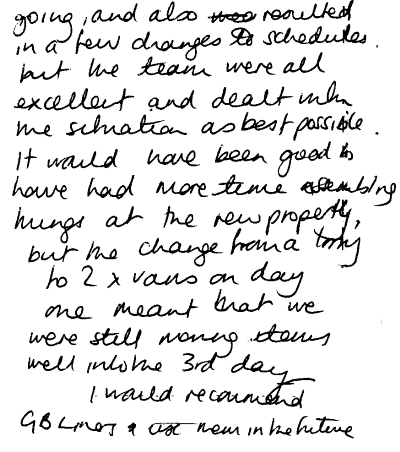 going, and also resulted
in a few changes to schedules.
but the team were all
excellent and dealt with
the situation as best possible.
It would have been good to
have had more time assembling
things at the new property,
but the change from a lorry
to 2 x vans on day
one meant that we
were still moving items
well into the 3rd day
I would recommend
GB Liners & use them in the future